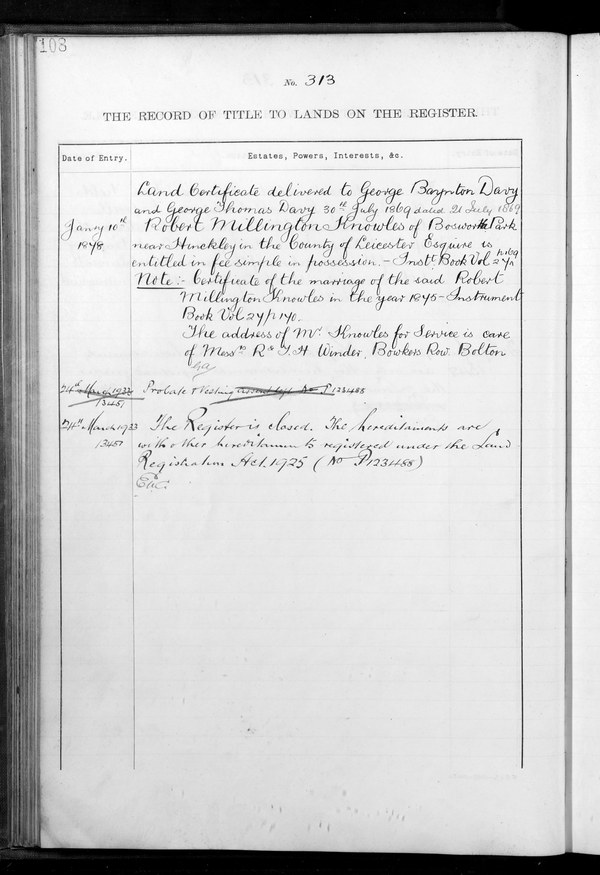 103
No. 313
THE RECORD OF TITLE TO LANDS ON THE REGISTER.
Date of Entry. Estates, Powers, Interests, &c.
Land Certificate delivered to George Baynton Davy
and George Thomas Davy 30th July 1869 dated 21 July 1869
Janry 10th 1878 Robert Millington Knowles of Bosworth Park
near Hinckley in the County of Leicester Esquire is
entitled in fee simple in possession. - Inst. Book Vol 27/p 169
Note :- Certificate of the marriage of the said Robert
Millington Knowles in the year 1875 - Instrument
Book Vol 27/p 170.
The address of Mr. Knowles for Service is care
of Messrs R & J. H Winder, Bowkers Row. Bolton
24th March 1933 Probate & Vesting No P123488
13451
24th March 1933 The Register is closed. The hereditaments are
13451 with other hereditaments registered under the Land
Registration Act. 1925 (No P123488)